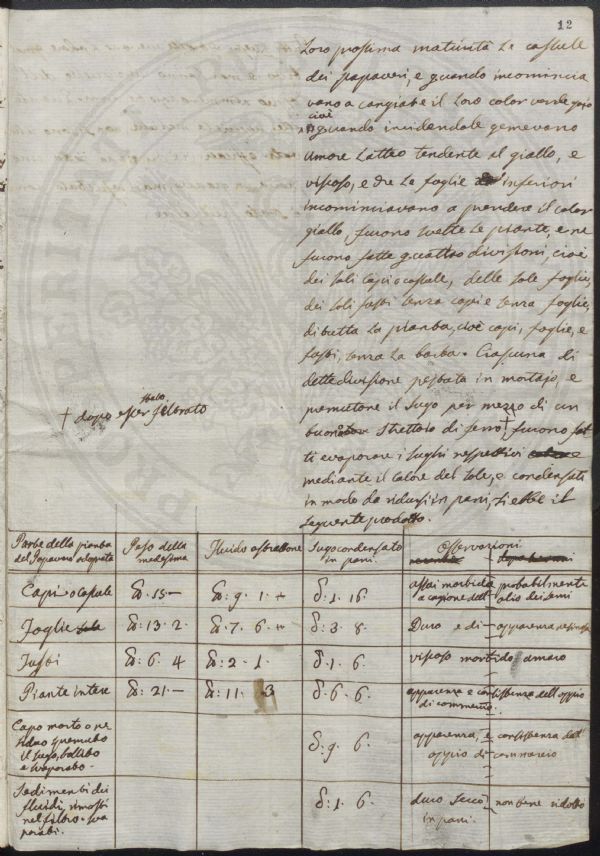 12
loro prossima maturità le cassule
dei papaveri, e quando incomincia
vano a cangiare il loro color verde
cioè
quando incidendole gemevano
umore latteo tendente al giallo, e
viscoso, e che le foglie inferiori
incominciavano a prendere il color
giallo, furono svelte le piante, e ne
furono fatte quattro divisioni, cioè
dei soli capi o cassule, delle sole foglie,
dei soli fusti senza capi e senza foglie,
di tutta la pianta, cioè capi, foglie, e
fusti, senza la barba. Ciascuna di
dette divisione pestata in mortajo, e
premutone il sugo per mezzo di un
buon strettoio di ferro †, furono fat
ti evaporare i sughi respettivi
mediante il calore del sole, e condensati
in modo da ridursi in pani, si ebbe il
seguente prodotto.
† dopo esser feltrato
Parte della pianta
del Papavero adoprata
Peso della
medesima
Fluido estrattone
Sugo condensato
in pani.
Osservazioni
Capi o cassule
15 —
9. 1. +
1. 16.
assai morbido probabilmente
a cagione dell' olio dei semi
Foglie
13. 2.
7. 6. +
3. 8.
Duro e di apparenza resinosa
Fusti
6. 4
2. 1.
1. 6.
viscoso morbido amaro
Piante intere
21. —
11. 3
6. 6.
apparenza e consistenza dell' oppio
di commercio.
Capo morto o re
siduo spremuto
il sugo, bollito
e evaporato.
9. 6.
apparenza, e consistenza dell'
oppio di commercio
Sedimenti dei
fluidi, rimasti
nel filtro. Eva
porati.
1. 6.
duro secco non bene ridotto
in pani.